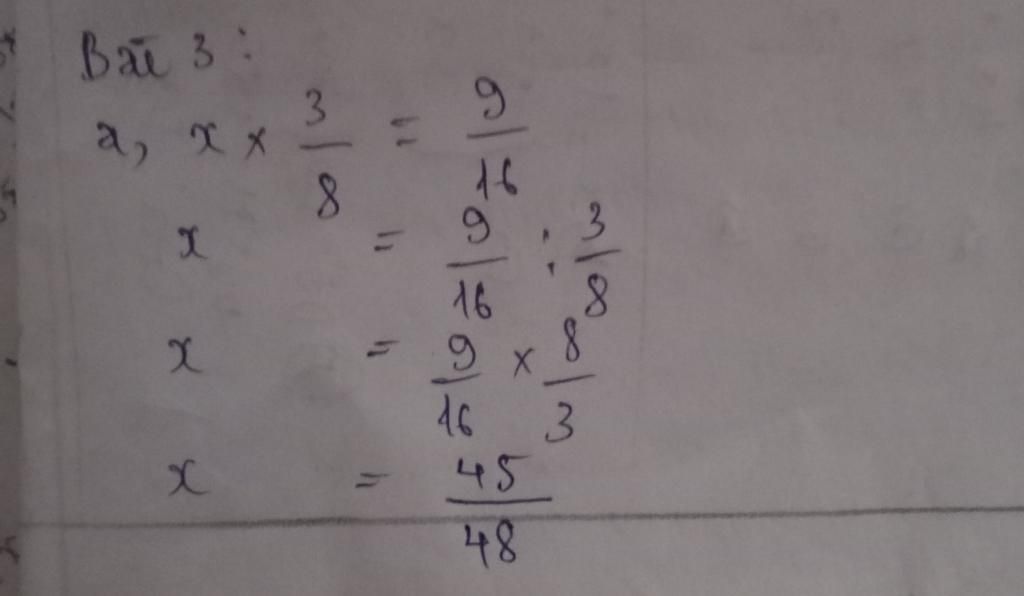 Bài 3:
a, x × 3/8 = 9/16
x = 9/16 : 3/8
x = 9/16 × 8/3
x = 45/48